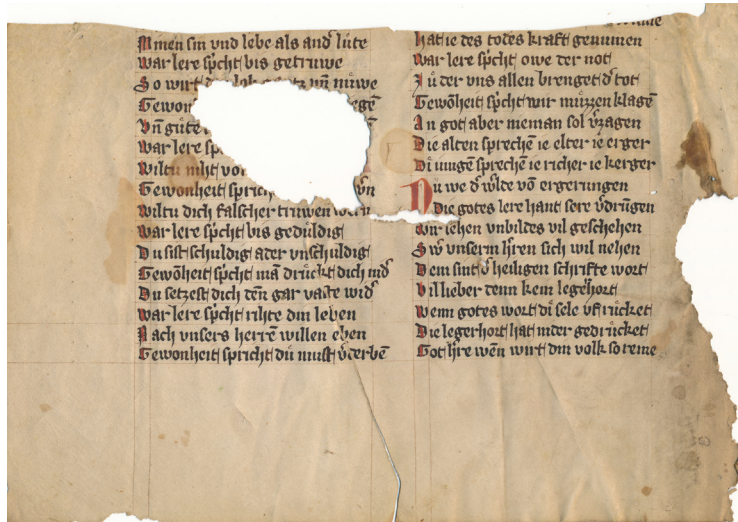 Minnen sin vnd lebe als and̕ lúte
War lere sp̕cht bis getruwe
So wirt
Gewon
Vn̄ gúte
War lere sp
Wiltu niht vol
Gewonheit sprich vn
Wiltu dich falscher truwen
War lere sp̕cht bis gedúldig
Du sist schuldig ader vnschuldig
Gewōheit sp̕cht mā drúckt dich nid̕
Du setzest dich dēn gar vaste wid̕
War lere sp̕cht rihte din leben
Nach vnsers herrē willen eben
Gewonheit spricht dú must v̕derbē
hat ie des todes kraft genumen
War lere sp̕cht owe der not
der vns allen brenget d̕ tot
Gewōheit sp̕cht wir múzzen klagē
An got aber nieman sol v̕zagen
Die alten sprechē ie elter ie erger
Di iungē sprechē ie richer ie kerger
Nu we d̕ w̕lde vō ergerungen
Die gotes lere hant sere v̕drūgen
Wir sehen vnbildes vil geschehen
Sw̕ vnserm h̕ren sich wil nehen
Dem sint d̕ heiligen schrifte wort
Vil lieber denn kein legehort
Wenn gotes wort di sele vf rúcket
Die legerhort hat nider gedrúcket
Got h̕re wēn wirt din volk so reine